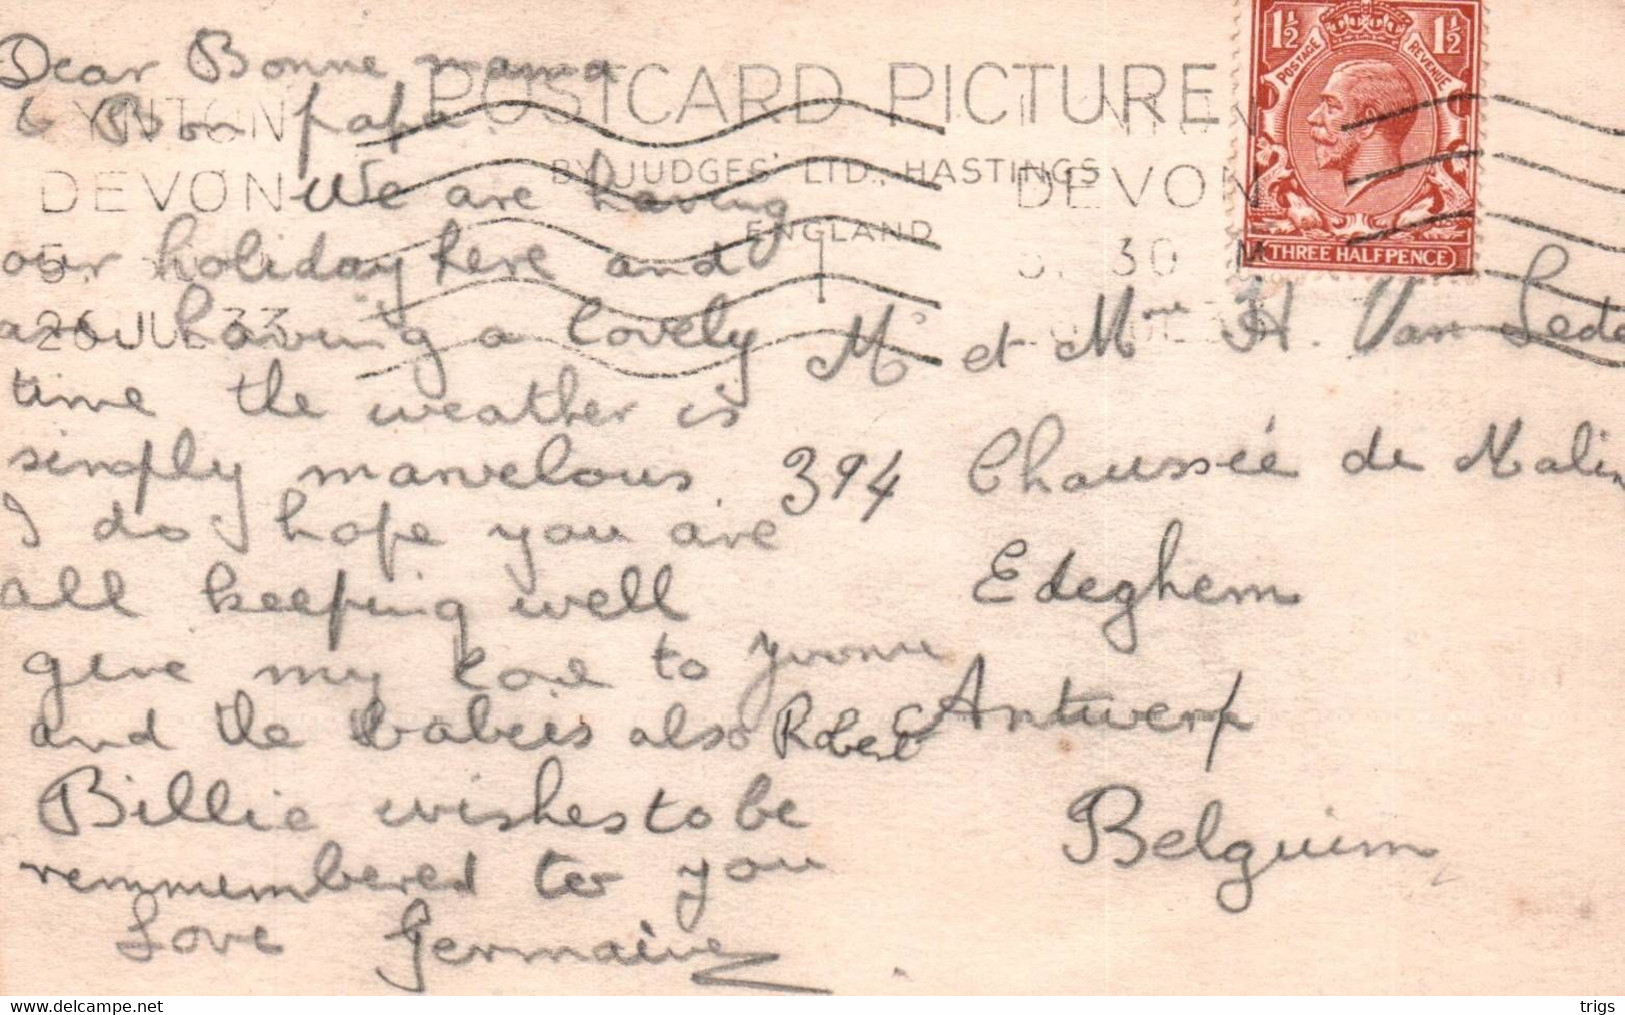 Dear Bonne mama
& Bon papa.
We are having
our holiday here and
are having a lovely
time the weather is
simply marvelous.
I do hope you are
all keeping well
give my love to Yvonne
and the babies also Robert
Billie wishes to be
remmembered to you
Love Germaine
POSTCARD PICTURE
BY JUDGES' LTD., HASTINGS
ENGLAND
LYNTON
DEVON
26 JUL 33
DEVON
30
1½ 1½
POSTAGE REVENUE
THREE HALFPENCE
Mr et Mme H. Van
394 Chaussée de Malin
Edeghem
Antwerp
Belguim
trigs